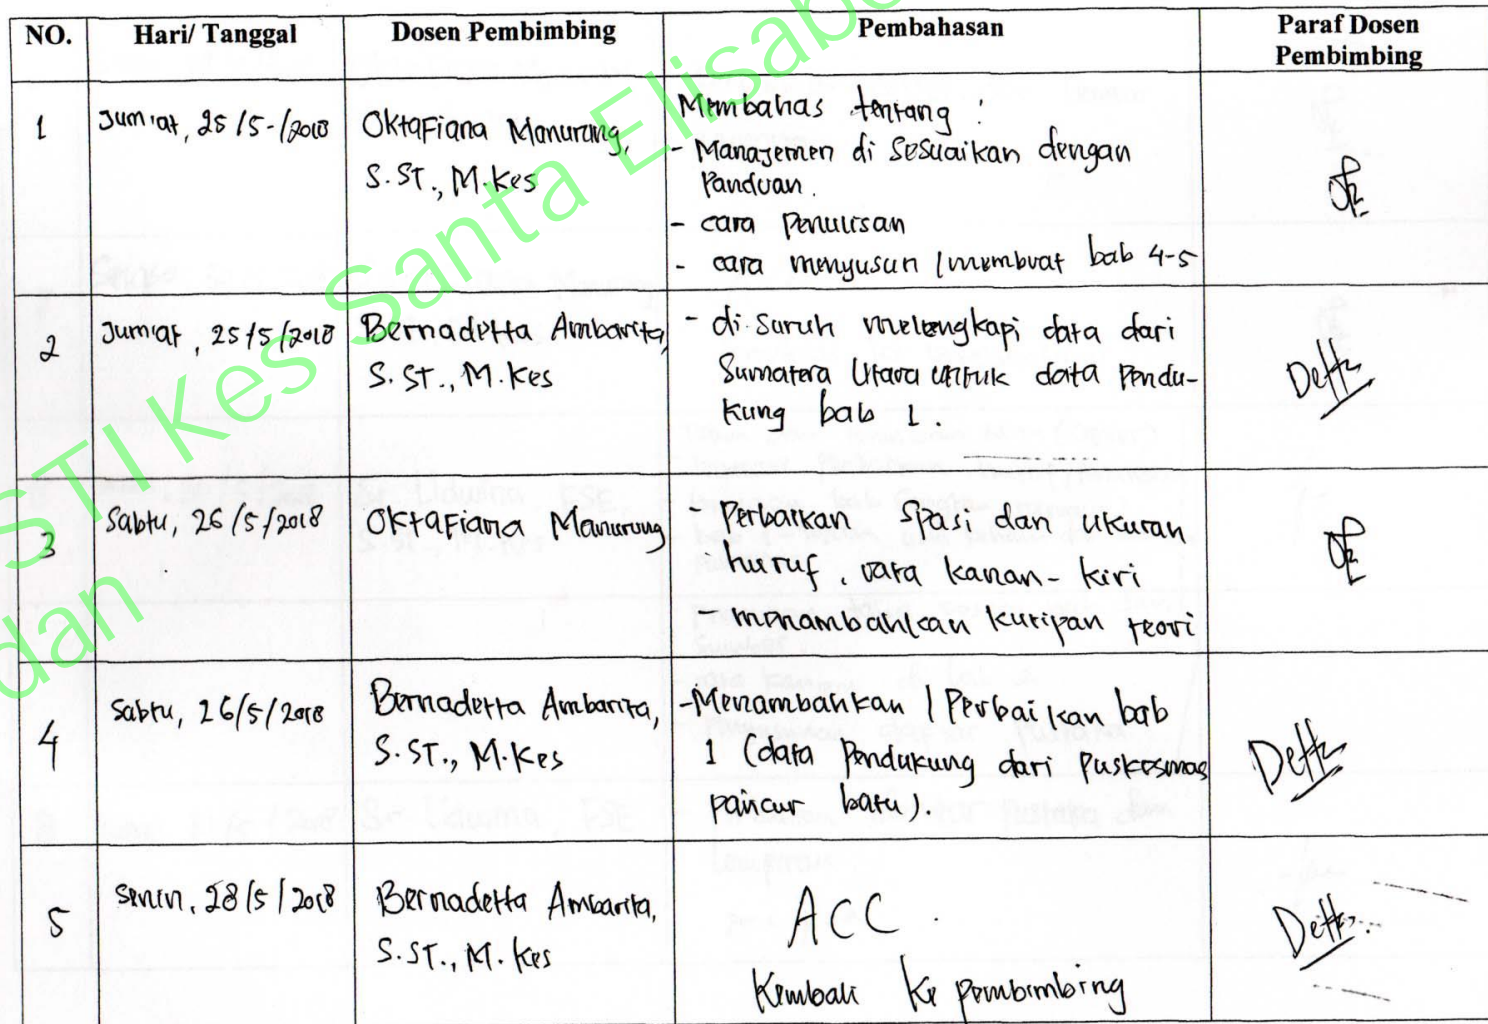 NO. Hari/ Tanggal Dosen Pembimbing Pembahasan Paraf Dosen
Pembimbing
1 Jum'at, 25/5-/2018 Oktafiana Manurung, Membahas tentang :
S.ST., M.Kes - Manajemen di sesuaikan dengan
Panduan.
- cara Penulisan
- cara menyusun / membuat bab 4-5
2 Jum'at, 25/5/2018 Bernadetta Ambarita, - di suruh melengkapi data dari
S.ST., M.Kes Sumatera Utara untuk data Pendu-
kung bab 1.
Detta
3 Sabtu, 26/5/2018 Oktafiana Manurung - Perbaikan Spasi dan ukuran
huruf, rata kanan-kiri
- menambahkan kutipan teori
4 Sabtu, 26/5/2018 Bernadetta Ambarita, - Menambahkan / Perbaikan bab
S.ST., M.Kes 1 (data Pendukung dari Puskesmas
pancur batu).
Detta
5 Senin, 28/5/2018 Bernadetta Ambarita, ACC.
S.ST., M.Kes
Detta
Kembali ke pembimbing
STIKes Santa Elisabe
dan